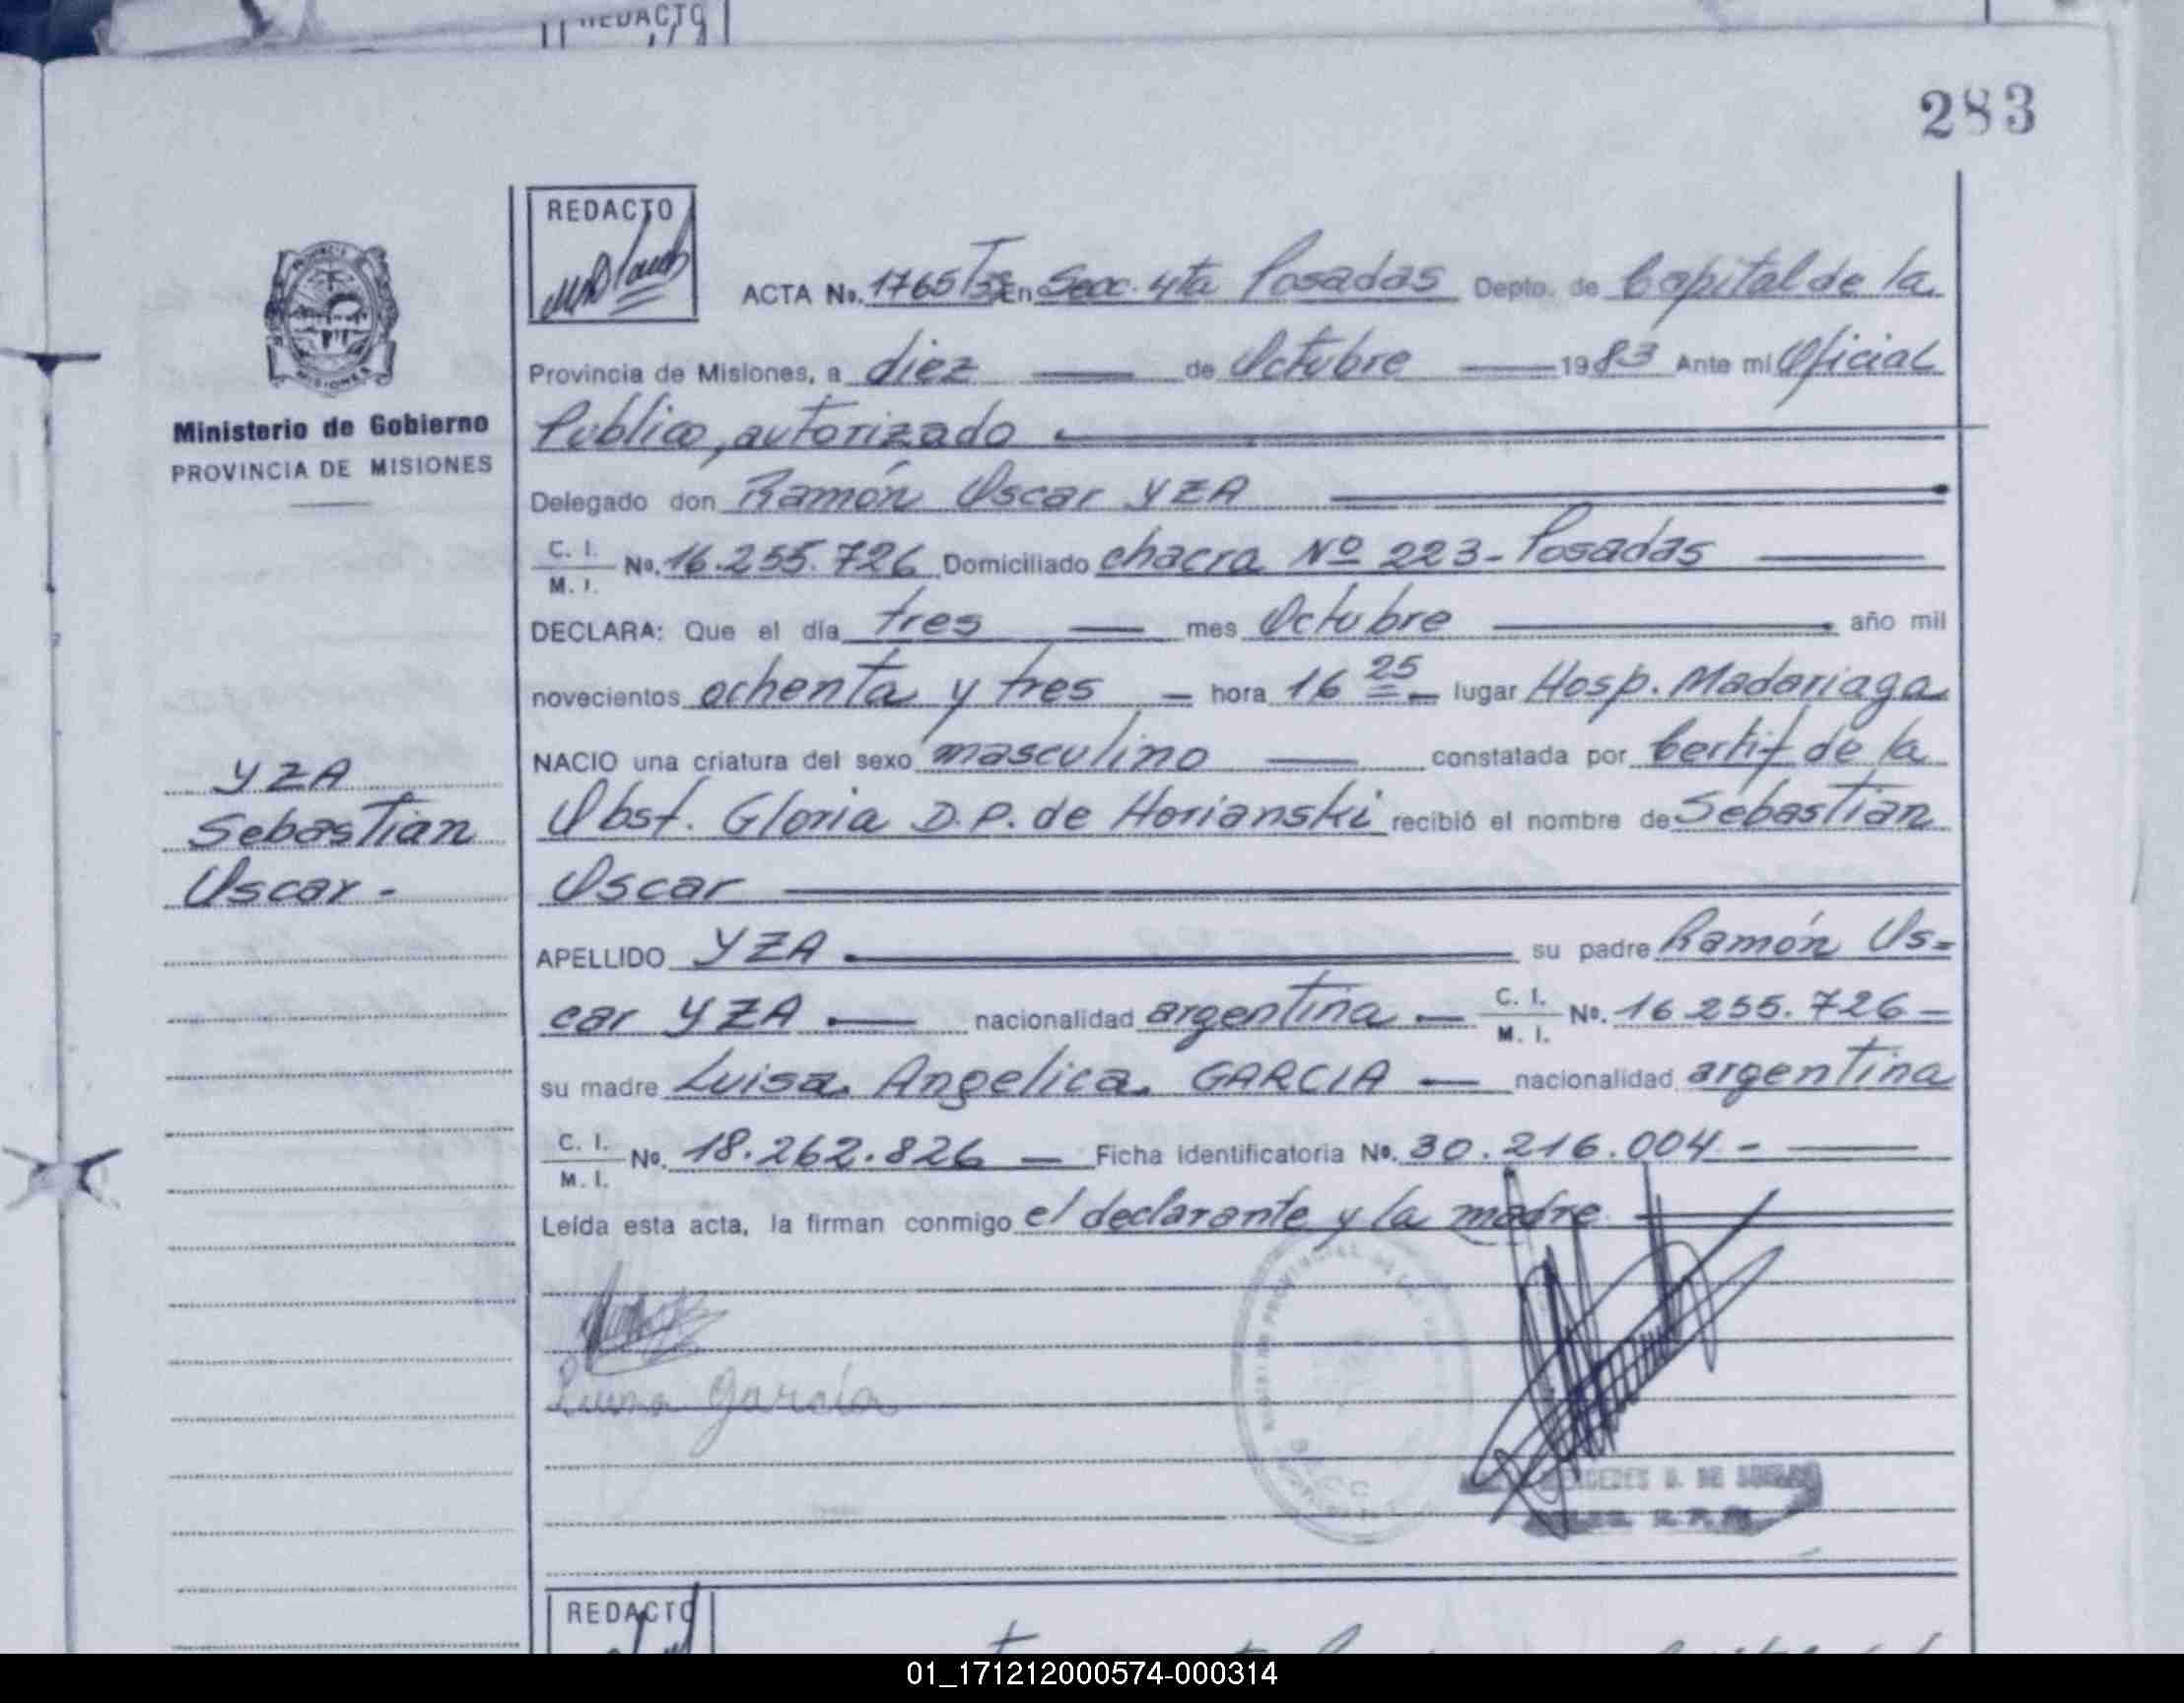 REDACTO
283
REDACTO
ACTA No. 1765 En Secc. 4ta Posadas Depto. de Capital de la
Provincia de Misiones, a diez de Octubre 1983 Ante mi Oficial
Publico, autorizado
Delegado don Ramón Oscar YZA
C. I.
M. I. No. 16.255.726 Domiciliado chacra Nº 223- Posadas
DECLARA: Que el día tres mes Octubre año mil
novecientos ochenta y tres hora 16 25 lugar Hosp. Madariaga
NACIO una criatura del sexo masculino constatada por Certif de la
Obst. Gloria D.P. de Horianski recibió el nombre de Sebastian
Oscar
APELLIDO YZA su padre Ramón Os=
car YZA nacionalidad argentina C. I.
M. I. No. 16.255.726
su madre Luisa Angelica GARCIA nacionalidad argentina
C. I.
M. I. No. 18.262.826 Ficha Identificatoria No. 30.216.004-
Leída esta acta, la firman conmigo el declarante y la madre
García
MISIONES
Ministerio de Gobierno
PROVINCIA DE MISIONES
YZA
Sebastian
Oscar-
REDACTO
01_171212000574-000314